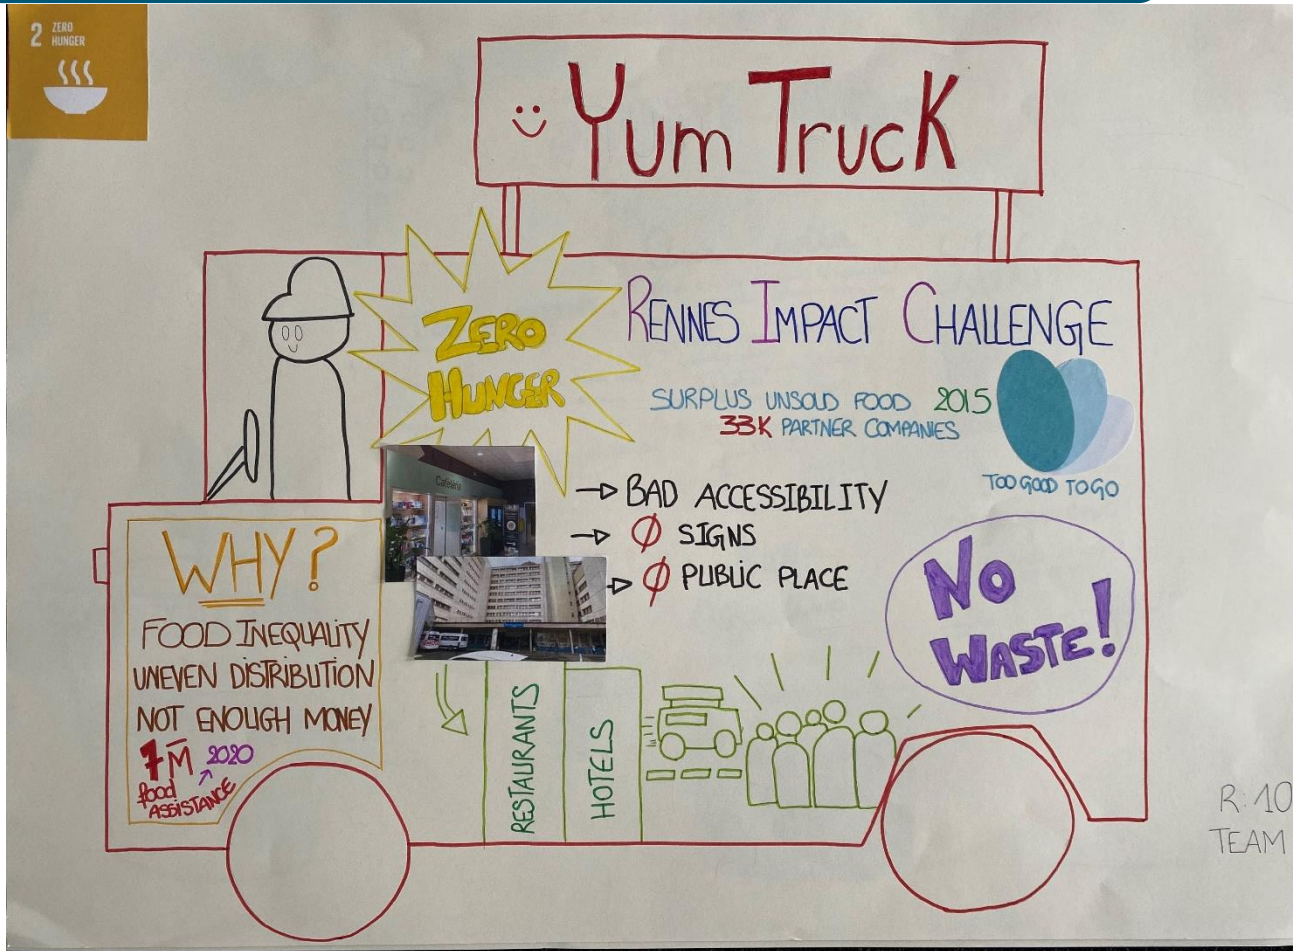 2 ZERO
HUNGER
Yum Truck
ZERO
HUNGER
RENNES IMPACT CHALLENGE
SURPLUS UNSOLD FOOD 2015
33K PARTNER COMPANIES
TOO GOOD TO GO
Cafétéria
→ BAD ACCESSIBILITY
→ Ø SIGNS
→ Ø PUBLIC PLACE
NO
WASTE!
WHY?
FOOD INEQUALITY
UNEVEN DISTRIBUTION
NOT ENOUGH MONEY
7M 2020
food
ASSISTANCE
RESTAURANTS
HOTELS
R:10
TEAM